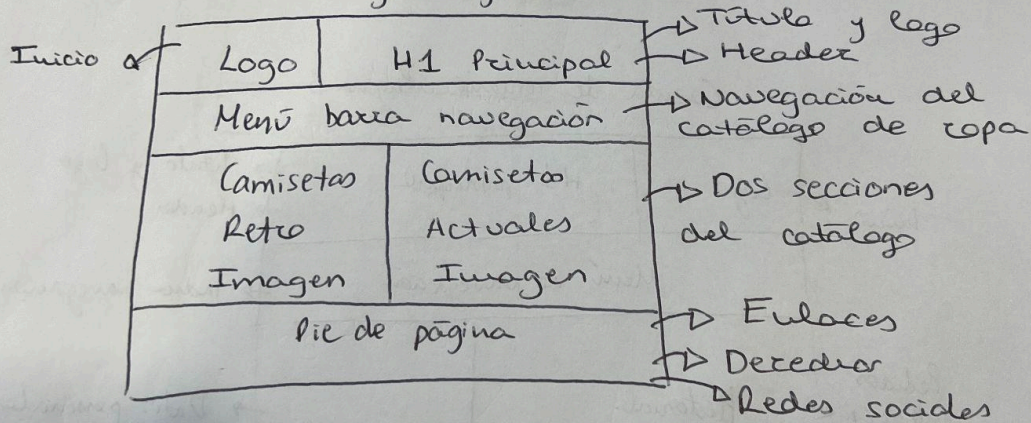 Inicio
Logo
H1 Principal
Título y logo
Header
Menú barra navegación
Navegación del
catálogo de ropa
Camisetas
Retro
Imagen
Camisetas
Actuales
Imagen
Dos secciones
del catalogo
Pie de página
Enlaces
Derechos
Redes sociales